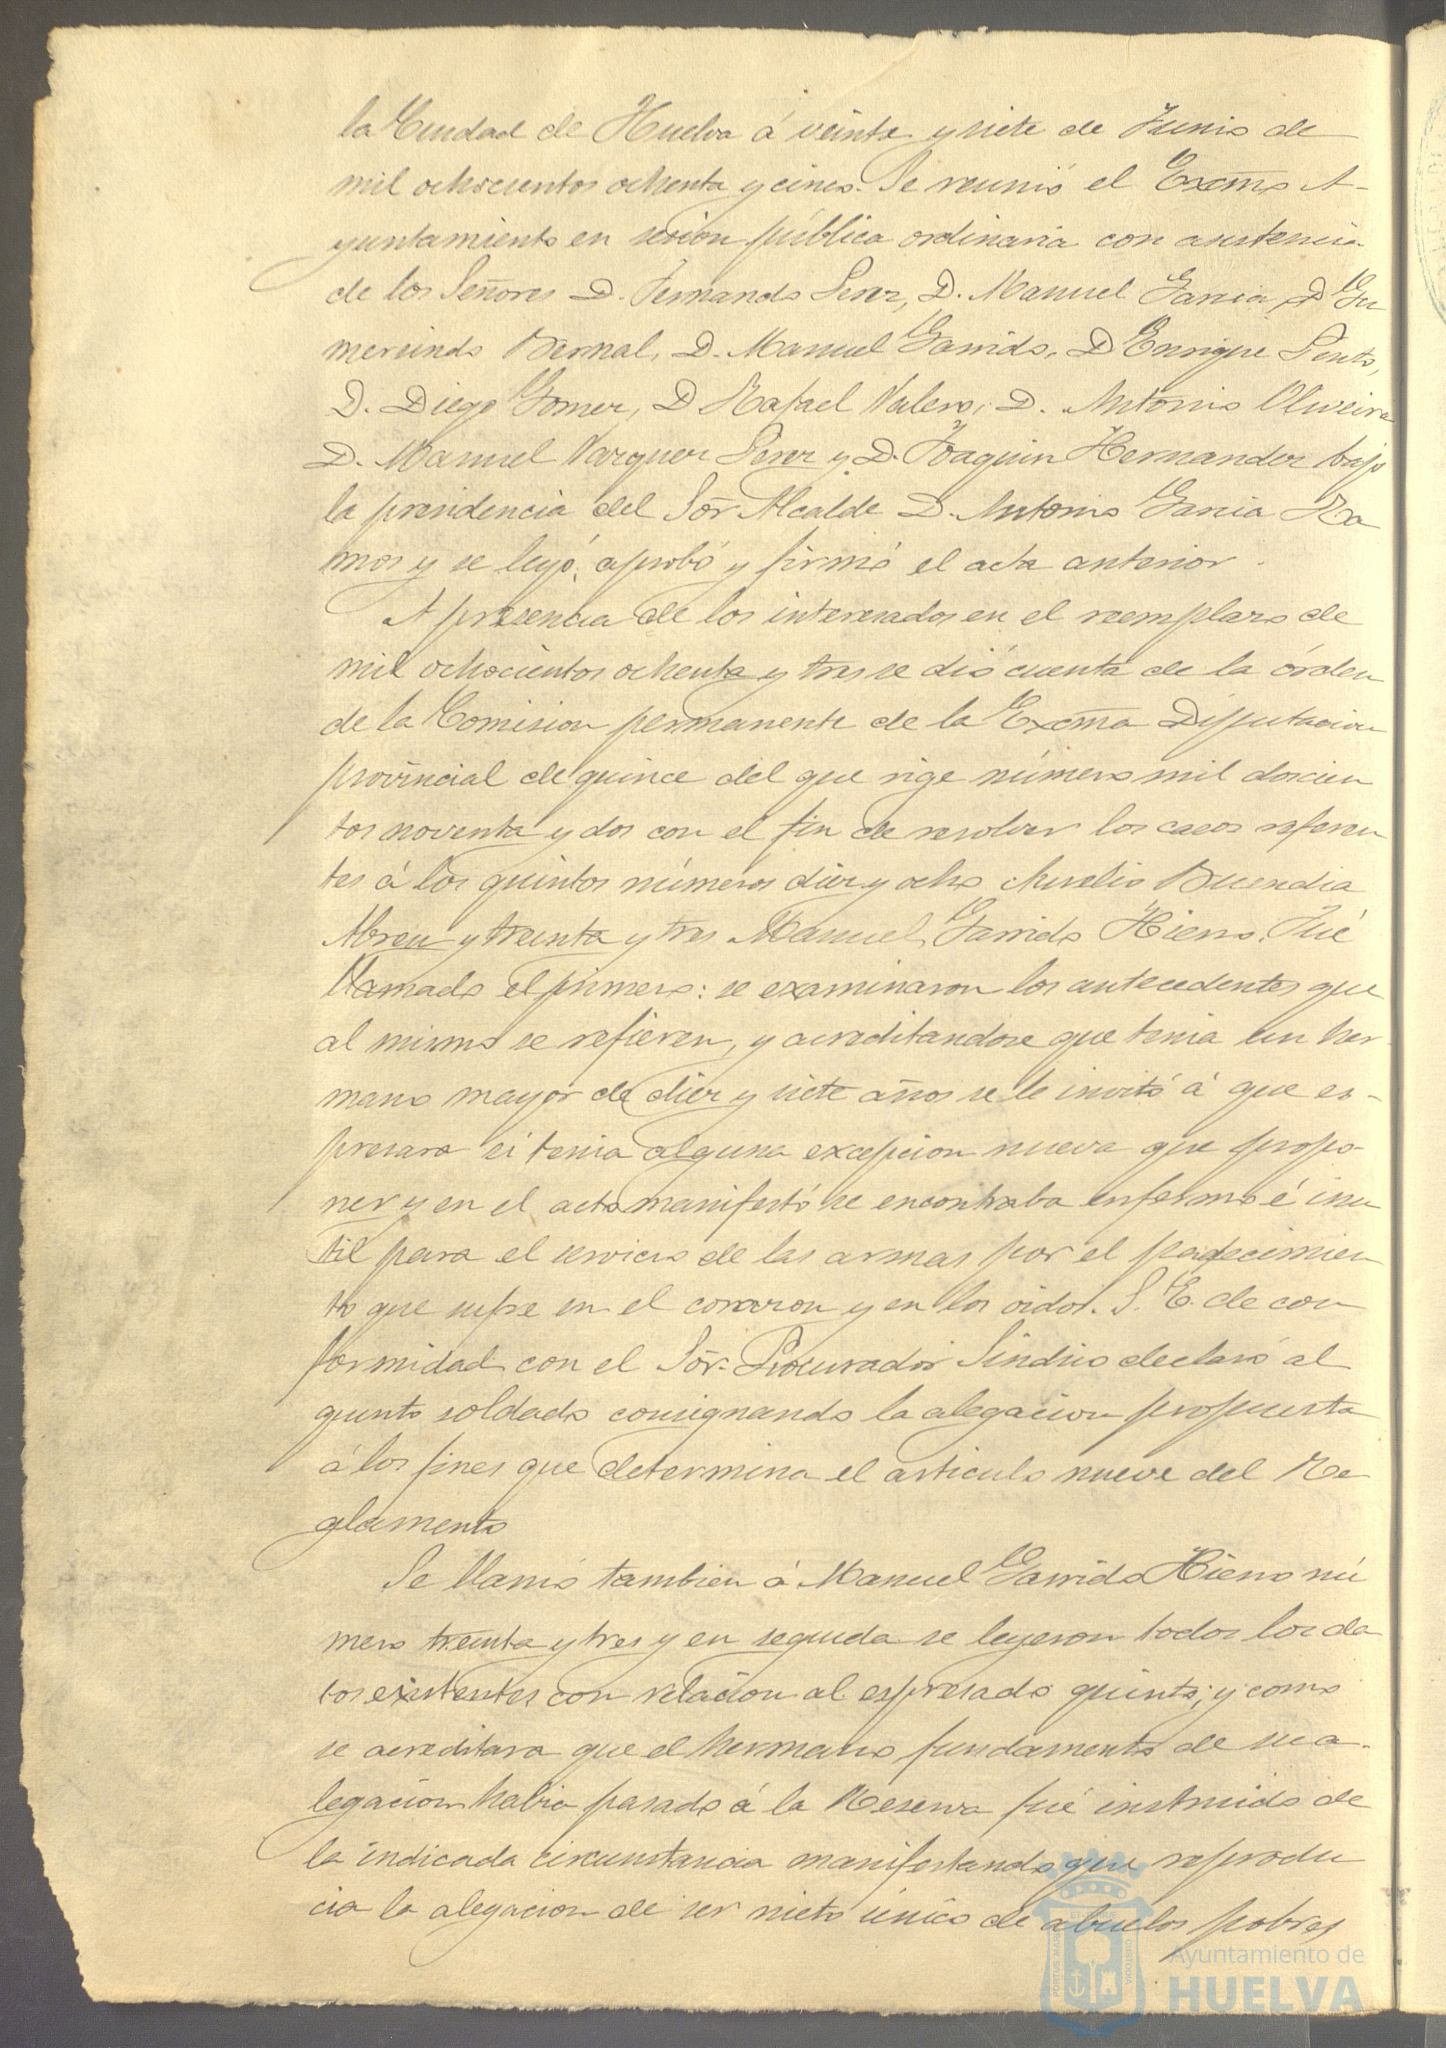 la Ciudad de Huelva á veinte y siete de Junio de
mil ochocientos ochenta y cinco. Se reunió el Excmo A-
yuntamiento en sesion pública ordinaria con asistencia
de los Señores D. Fernando Perez, D. Manuel Garcia, D Gu
mersindo Bernal, D. Manuel Garrido, D Enrique Pinto,
D. Diego Gomez, D Rafael Valero, D. Antonio Oliveira
D. Manuel Vazquez Perez y D. Joaquin Hernandez bajo
la presidencia del Sor Alcalde D. Antonio Garcia Ra
mos y se leyó, aprobó y firmó el acta anterior.
A presencia de los interesados en el reemplazo de
mil ochocientos ochenta y tres se dió cuenta de la órden
de la Comision permanente de la Excma Diputacion
provincial de quince del que rige número mil doscien
tos noventa y dos con el fin de resolver los casos referen
tes á los quintos números diez y ocho Aurelio Buendia
Abreu y treinta y tres Manuel Garrido Hierro. Fué
llamado el primero: se examinaron los antecedentes que
al mismo se refieren, y acreditandose que tenia un her-
mano mayor de diez y siete años se le invitó á que es-
presara si tenia alguna excepcion nueva que propo-
ner y en el acto manifestó se encontraba enfermo é inu
til para el servicio de las armas por el padecimien
to que sufre en el corazon y en los oidos. S. E. de con
formidad con el Sor. Procurador Síndico declaró al
quinto soldado consignando la alegacion propuesta
á los fines que determina el articulo nueve del Re
glamento
Se llamó tambien á Manuel Garrido Hierro nú
mero treinta y tres y en seguida se leyeron todos los da
tos existentes con relacion al espresado quinto; y como
se acreditara que el hermano fundamento de su a-
legacion habia pasado á la Reserva fué instruido de
la indicada circunstancia manifestando que reprodu
cia la alegacion de ser nieto único de abuelos pobres
Ayuntamiento de
HUELVA